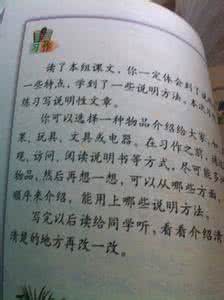 习作
读了本组课文，你一定体会到了说
一些特点，学到了一些说明方法。本次
练习写说明性文章。
你可以选择一种物品介绍给大家，如
果、玩具、文具或电器。在习作之前，
观、访问、阅读说明书等方式，尽可能多
物品，然后再想一想，可以从哪些方面、
顺序来介绍，能用上哪些说明方法。
写完以后读给同学听，看看介绍清
清楚的地方再改一改。